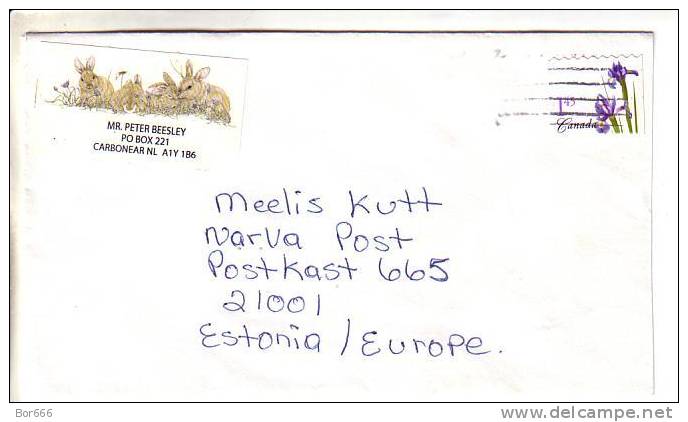 MR. PETER BEESLEY
PO BOX 221
CARBONEAR NL A1Y 1B6
1 45
Canada
Meelis Kutt
Narva Post
Postkast 665
21001
Estonia / Europe.
Bor666
delcampe.net